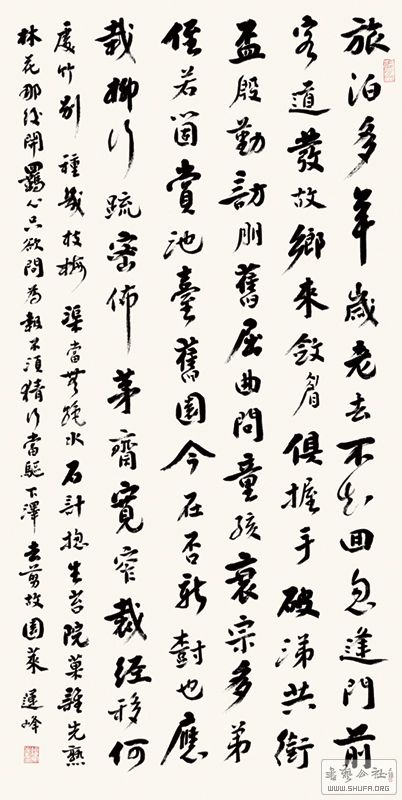 旅泊多年歲老去不知囬忽逢門前
客道發故鄉來斂眉俱握手破涕共銜
盃殷勤訪朋舊屈曲問童孩衰宗多弟
侄若箇賞池臺舊園今在否新樹也應
栽柳行疏密佈茅齋寬窄裁經移何
處竹別種幾枝梅渠當無絕水石計揔生苔院菓誰先熟
林花那後開羈心只欲問為報不須猜行當驅下澤去剪故園萊 蓮峰
書藝公社
WWW.SHUFA.ORG